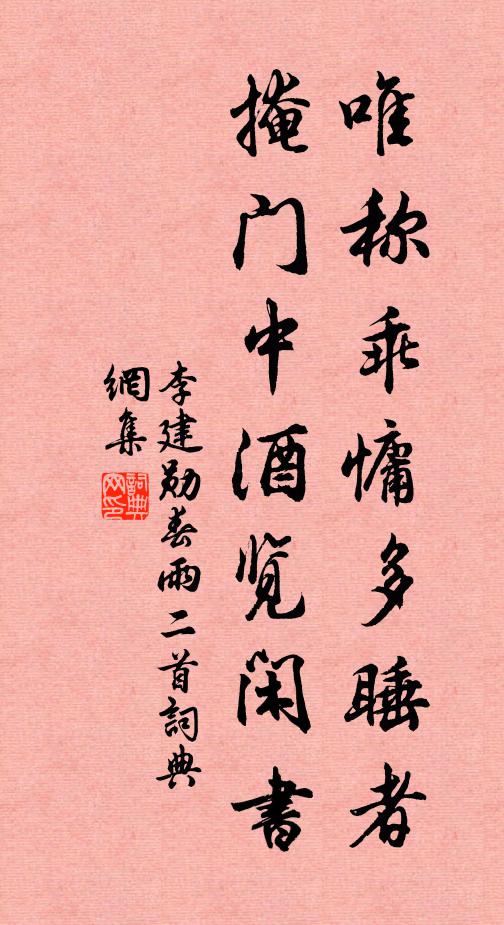 唯称乖慵多睡者
掩门中酒览闲书
李建勋春雨二首詞典
網集
詞典
网印